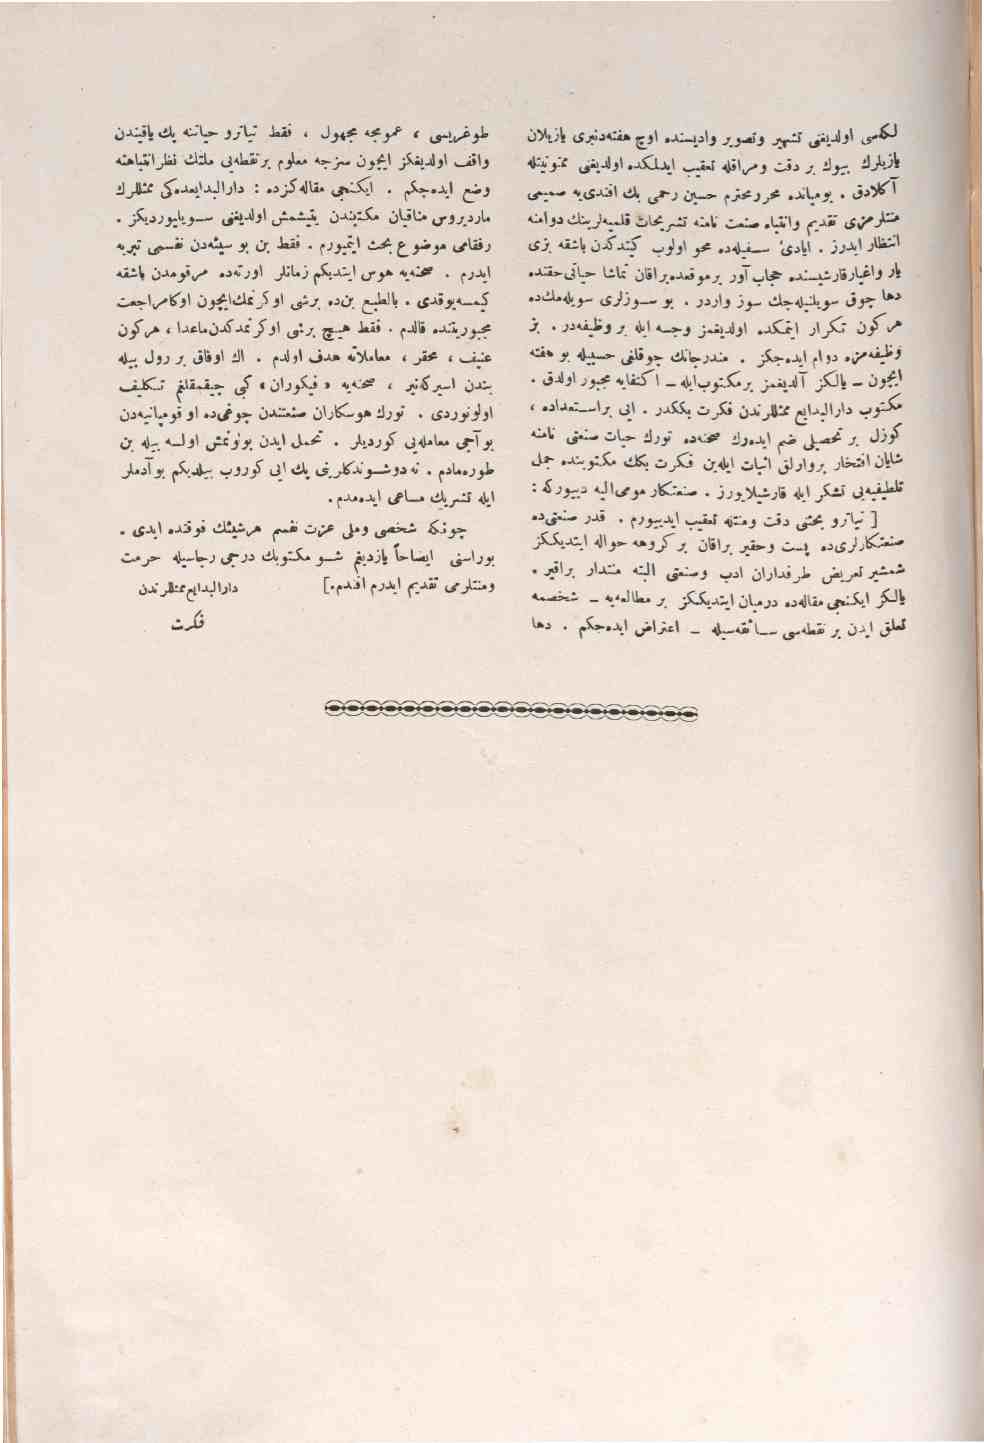 لكه‌سی اولديغنی تشهير وتصوير واديسنده اوچ هفته‌دنبری يازيلان
يازيلرك بيوك بر دقت ومراقله تعقيب ايدلمكده اولديغنی ممنونيتله
آكلادق . بوميانده محرر محترم حسين رحمی بك افندی‌يه صميمی
منتلرمزی تقديم وانتباه صنعت نامنه تشريحات قلميه‌لرينك دوامنه
انتظار ايدرز . ايادئ سفيله‌ده محو اولوب كيتدكدن باشقه بزی
يار واغيار قارشيسنده حجاب آور برموقعده براقان تماشا حياتی حقنده
دها چوق سويلنيله‌جك سوز واردر . بو سوزلری سويله‌مكده
هر كون تكرار ايتمكده اولديغمز وجهله بر وظيفه‌در . بز
وظيفه‌مزه دوام ايده‌جكز . مندرجاتك چوقلغی حسبيله بو هفته
ايچون ـ يالكز آلديغمز برمكتوب ايله ـ اكتفايه مجبور اولدق .
مكتوب دارالبدايع ممثللرندن فكرت بككدر . ايی براستعداده ،
كوزل بر تحصيلی ضم ايده‌رك صحنه‌ده تورك حيات صنعتی نامنه
شايان افتخار بروارلق اثبات ايله‌ين فكرت بكك مكتوبنده جمل
تلطيفيه‌يی تشكر ايله قارشيلايورز . صنعتكار مومی‌اليه ديیوركه :
[ تياترو بحثنی دقت ومنتله تعقيب ايدييورم . قدر صنعتی‌ده
صنعتكارلری‌ده پست وحقير براقان بر كروهه حواله ايتديككز
شمشير تعريض طرفداران ادب وصنعتی البته منتدار براقير .
يالكز ايكنجی مقاله‌ده درميان ايتديككز بر مطالعه‌يه ـ شخصمه
تعلق ايدن بر نقطه‌سی سائقه‌سيله ـ اعتراض ايده‌جكم . دها
طوغريسی ، عمومجه مجهول ، فقط تياترو حياتنه پك ياقيندن
واقف اولديغكز ايچون سزجه معلوم برنقطه‌يی ملتك نظر انتباهنه
وضع ايده‌جكم . ايكنجی مقاله‌كزده : دارالبدايعده‌كی ممثللرك
مارديروس مناقيان مكتبندن يتيشمش اولديغنی سويلييورديكز .
رفقامی موضوع بحث ايتميورم . فقط بن بو سيئه‌دن نفسمی تبريه
ايدرم . صحنه‌يه هوس ايتديكم زمانلر اورته‌ده مرقومدن باشقه
كيمسه يوقدی . بالطبع بن‌ده برشی اوكرنمك ايچون اوكا مراجعت
مجبوريتنده قالدم . فقط هيچ برشی اوكرنمدكدن ماعدا ، هركون
عنيف ، محقر ، معاملاته هدف اولدم . اك اوفاق بر رول بيله
بندن اسيركه‌نير ، صحنه‌يه « فيكوران » كبی چيقمقلغم تكليف
اولونوردی . تورك هوسكاران صنعتندن چوغی‌ده او قومپانيه‌دن
بو آجی معامله‌يی كورديلر . تحمل ايدن بولونمش اولسه بيله بن
طوره‌مادم . نه دوشوندكلرينی پك ايی كوروب بيلديكم بو آدملر
ايله تشريك مساعی ايده‌مدم .
چونكه شخصی وملی عزت نفسم هرشيئك فوقنده ايدی .
بوراسنی ايضاحاً يازديغم شو مكتوبك درجی رجاسيله حرمت
ومنتلرمی تقديم ايدرم افندم .] دارالبدايع ممثللرندن
فكرت